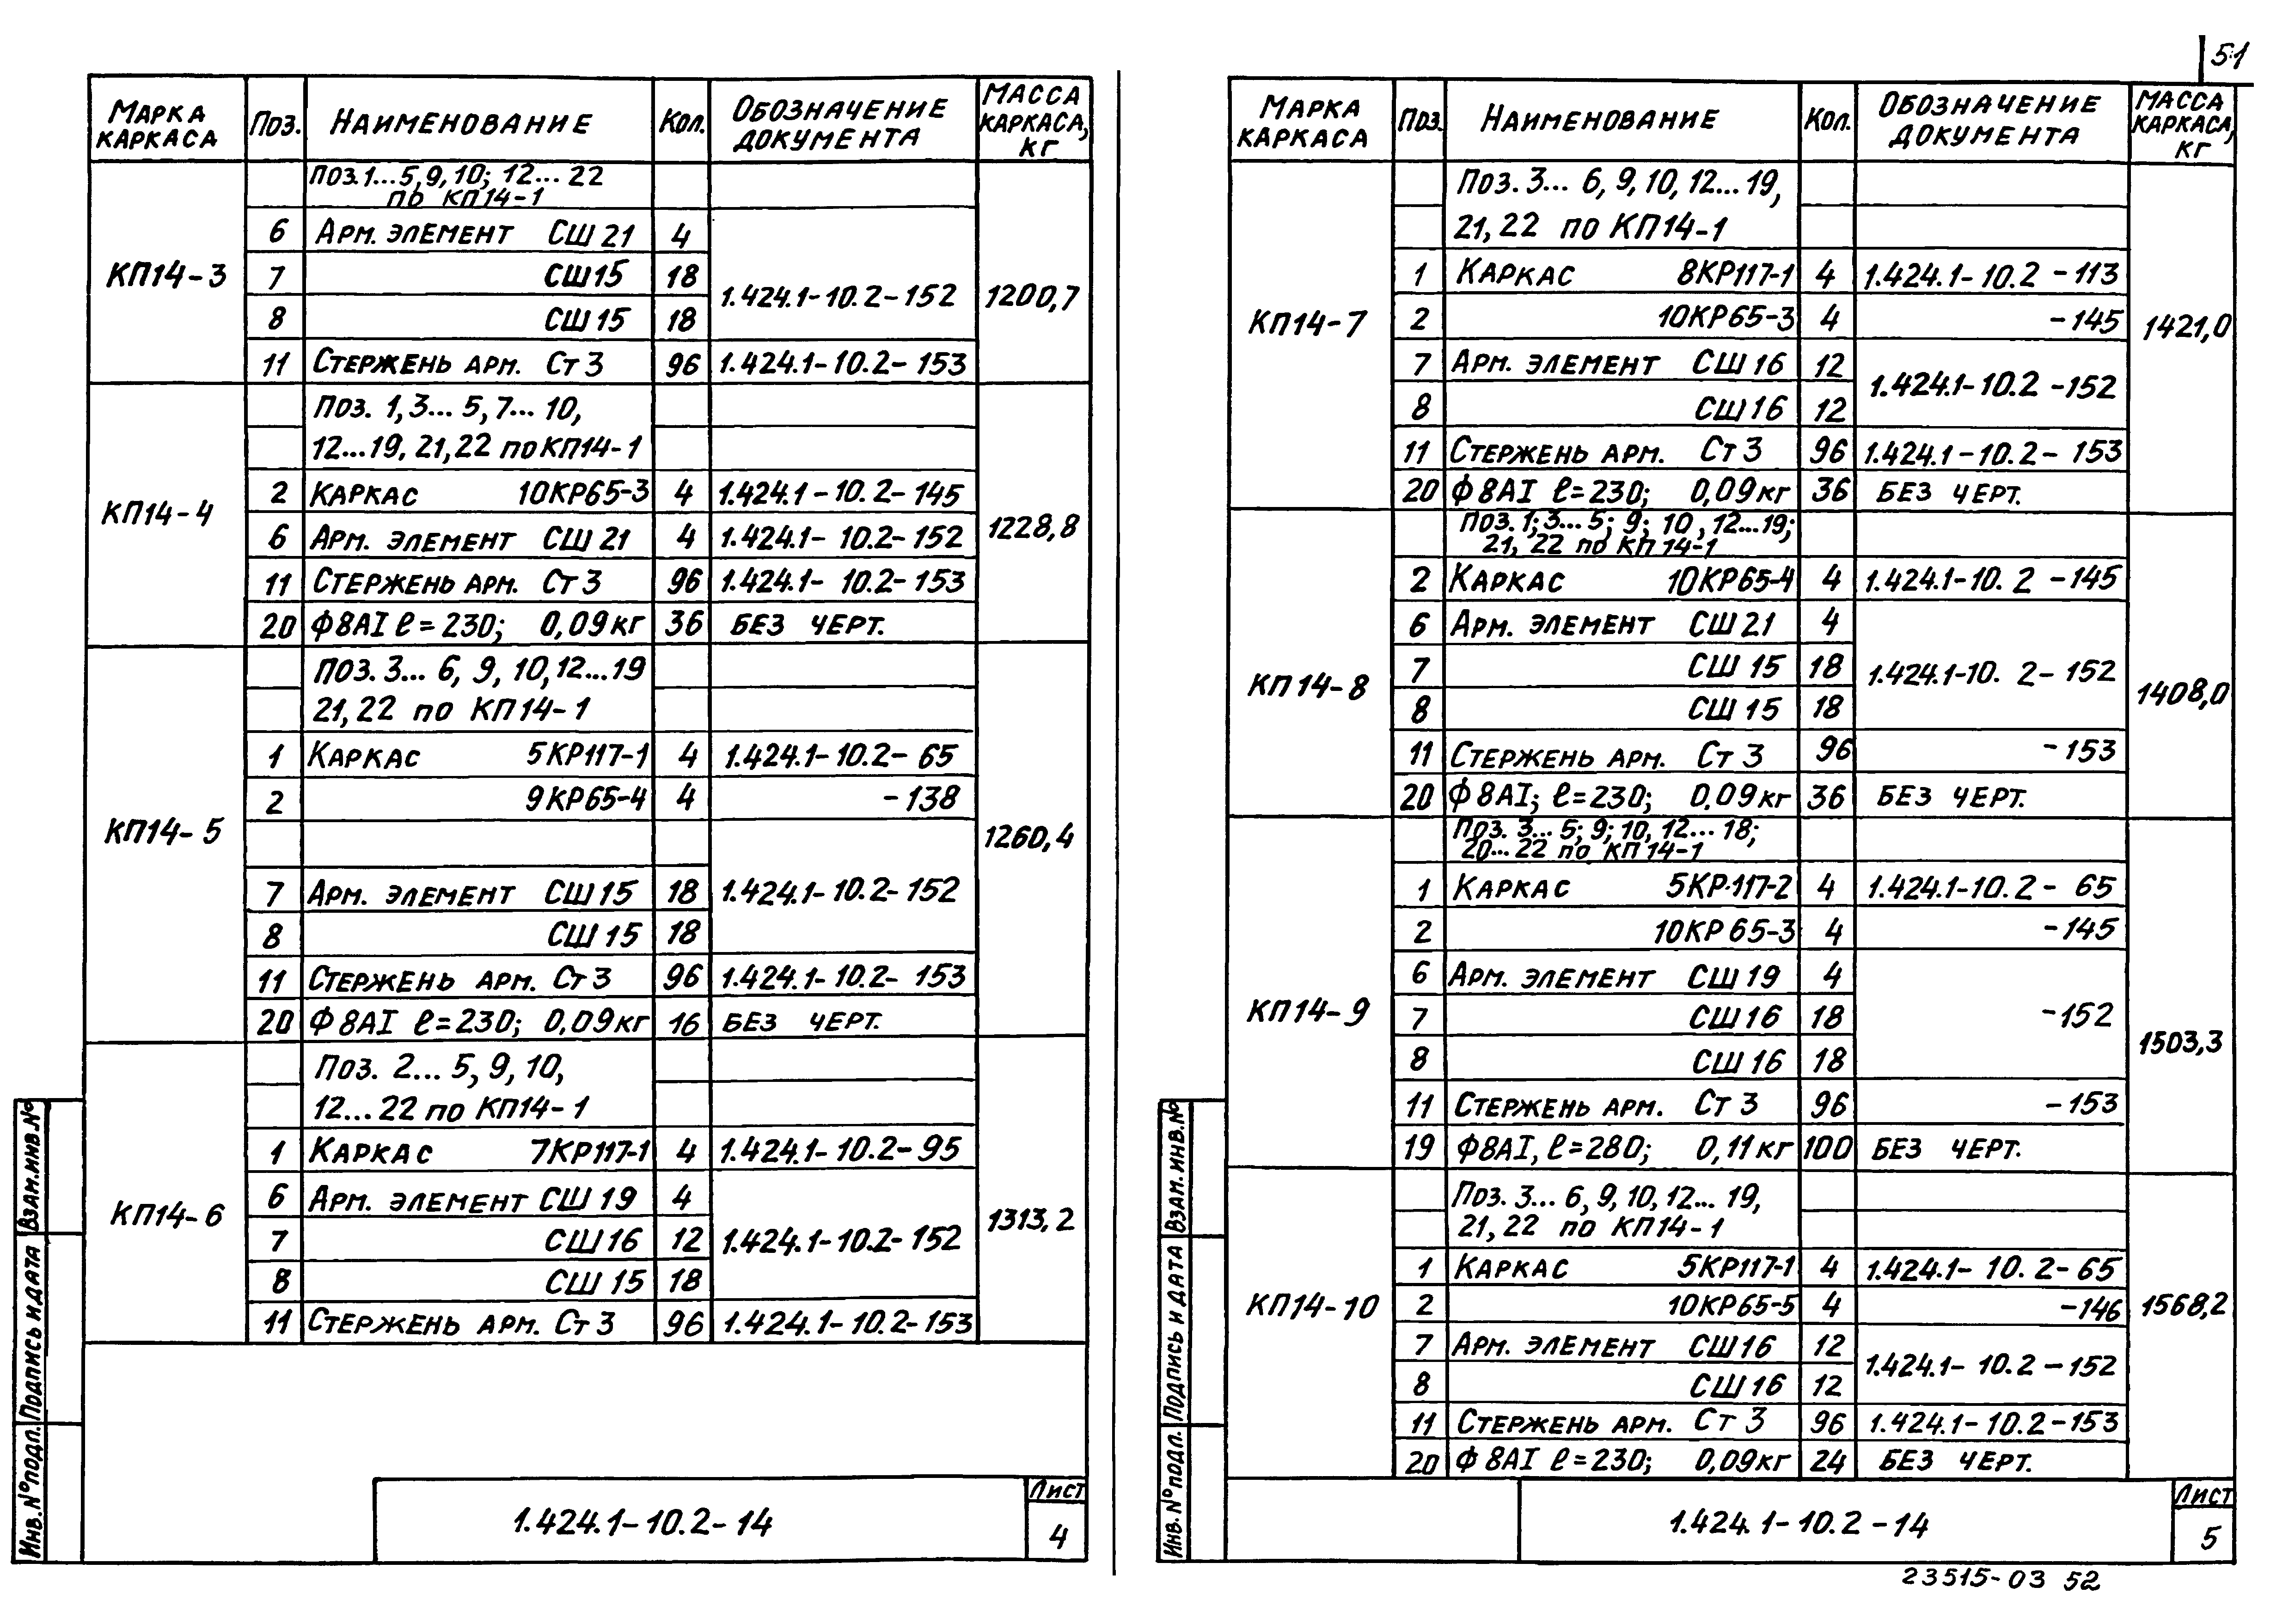 51
МАРКА КАРКАСА ПОЗ. НАИМЕНОВАНИЕ КОЛ. ОБОЗНАЧЕНИЕ ДОКУМЕНТА МАССА КАРКАСА, КГ
КП14-3 1200,7
ПОЗ.1...5,9,10; 12...22
ПО КП14-1
6 АРМ. ЭЛЕМЕНТ СШ21 4
7 СШ15 18
1.424.1-10.2-152
8 СШ15 18
11 СТЕРЖЕНЬ АРМ. Ст3 96 1.424.1-10.2-153
КП14-4 1228,8
ПОЗ. 1,3... 5,7... 10,
12...19, 21,22 ПО КП14-1
2 КАРКАС 10КР65-3 4 1.424.1-10.2-145
6 АРМ. ЭЛЕМЕНТ СШ21 4 1.424.1-10.2-152
11 СТЕРЖЕНЬ АРМ. Ст3 96 1.424.1-10.2-153
20 Ф8АI ℓ=230; 0,09кг 36 БЕЗ ЧЕРТ.
КП14-5 1260,4
ПОЗ. 3... 6, 9, 10,12...19
21,22 ПО КП14-1
1 КАРКАС 5КР117-1 4 1.424.1-10.2-65
2 9КР65-4 4 -138
7 АРМ. ЭЛЕМЕНТ СШ15 18 1.424.1-10.2-152
8 СШ15 18
11 СТЕРЖЕНЬ АРМ. Ст3 96 1.424.1-10.2-153
20 Ф8АI ℓ=230; 0,09кг 16 БЕЗ ЧЕРТ.
КП14-6 1313,2
ПОЗ. 2... 5, 9, 10,
12...22 ПО КП14-1
1 КАРКАС 7КР117-1 4 1.424.1-10.2-95
6 АРМ. ЭЛЕМЕНТ СШ19 4
7 СШ16 12 1.424.1-10.2-152
8 СШ15 18
11 СТЕРЖЕНЬ АРМ. Ст3 96 1.424.1-10.2-153
ИНВ.№ПОДЛ. ПОДПИСЬ И ДАТА ВЗАМ.ИНВ.№
1.424.1-10.2-14
ЛИСТ
4
МАРКА КАРКАСА ПОЗ. НАИМЕНОВАНИЕ КОЛ. ОБОЗНАЧЕНИЕ ДОКУМЕНТА МАССА КАРКАСА, КГ
КП14-7 1421,0
ПОЗ. 3... 6, 9, 10, 12...19,
21,22 ПО КП14-1
1 КАРКАС 8КР117-1 4 1.424.1-10.2-113
2 10КР65-3 4 -145
7 АРМ. ЭЛЕМЕНТ СШ16 12
1.424.1-10.2-152
8 СШ16 12
11 СТЕРЖЕНЬ АРМ. Ст3 96 1.424.1-10.2-153
20 Ф8АI ℓ=230; 0,09кг 36 БЕЗ ЧЕРТ.
КП14-8 1408,0
ПОЗ. 1; 3... 5; 9; 10, 12...19;
21, 22 ПО КП14-1
2 КАРКАС 10КР65-4 4 1.424.1-10.2-145
6 АРМ. ЭЛЕМЕНТ СШ21 4
7 СШ15 18 1.424.1-10.2-152
8 СШ15 18
11 СТЕРЖЕНЬ АРМ. Ст3 96 -153
20 Ф8АI; ℓ=230; 0,09кг 36 БЕЗ ЧЕРТ.
КП14-9 1503,3
ПОЗ. 3... 5; 9; 10, 12... 18;
20...22 ПО КП14-1
1 КАРКАС 5КР-117-2 4 1.424.1-10.2-65
2 10КР65-3 4 -145
6 АРМ. ЭЛЕМЕНТ СШ19 4
7 СШ16 18 -152
8 СШ16 18
11 СТЕРЖЕНЬ АРМ. Ст3 96 -153
19 Ф8АI, ℓ=280; 0,11кг 100 БЕЗ ЧЕРТ.
КП14-10 1568,2
ПОЗ. 3... 6, 9, 10, 12... 19,
21, 22 ПО КП14-1
1 КАРКАС 5КР117-1 4 1.424.1-10.2-65
2 10КР65-5 4 -146
7 АРМ. ЭЛЕМЕНТ СШ16 12
1.424.1-10.2-152
8 СШ16 12
11 СТЕРЖЕНЬ АРМ. Ст3 96 1.424.1-10.2-153
20 Ф8АI ℓ=230; 0,09кг 24 БЕЗ ЧЕРТ.
ИНВ.№ПОДЛ. ПОДПИСЬ И ДАТА ВЗАМ.ИНВ.№
1.424.1-10.2-14
ЛИСТ
5
23515-03 52